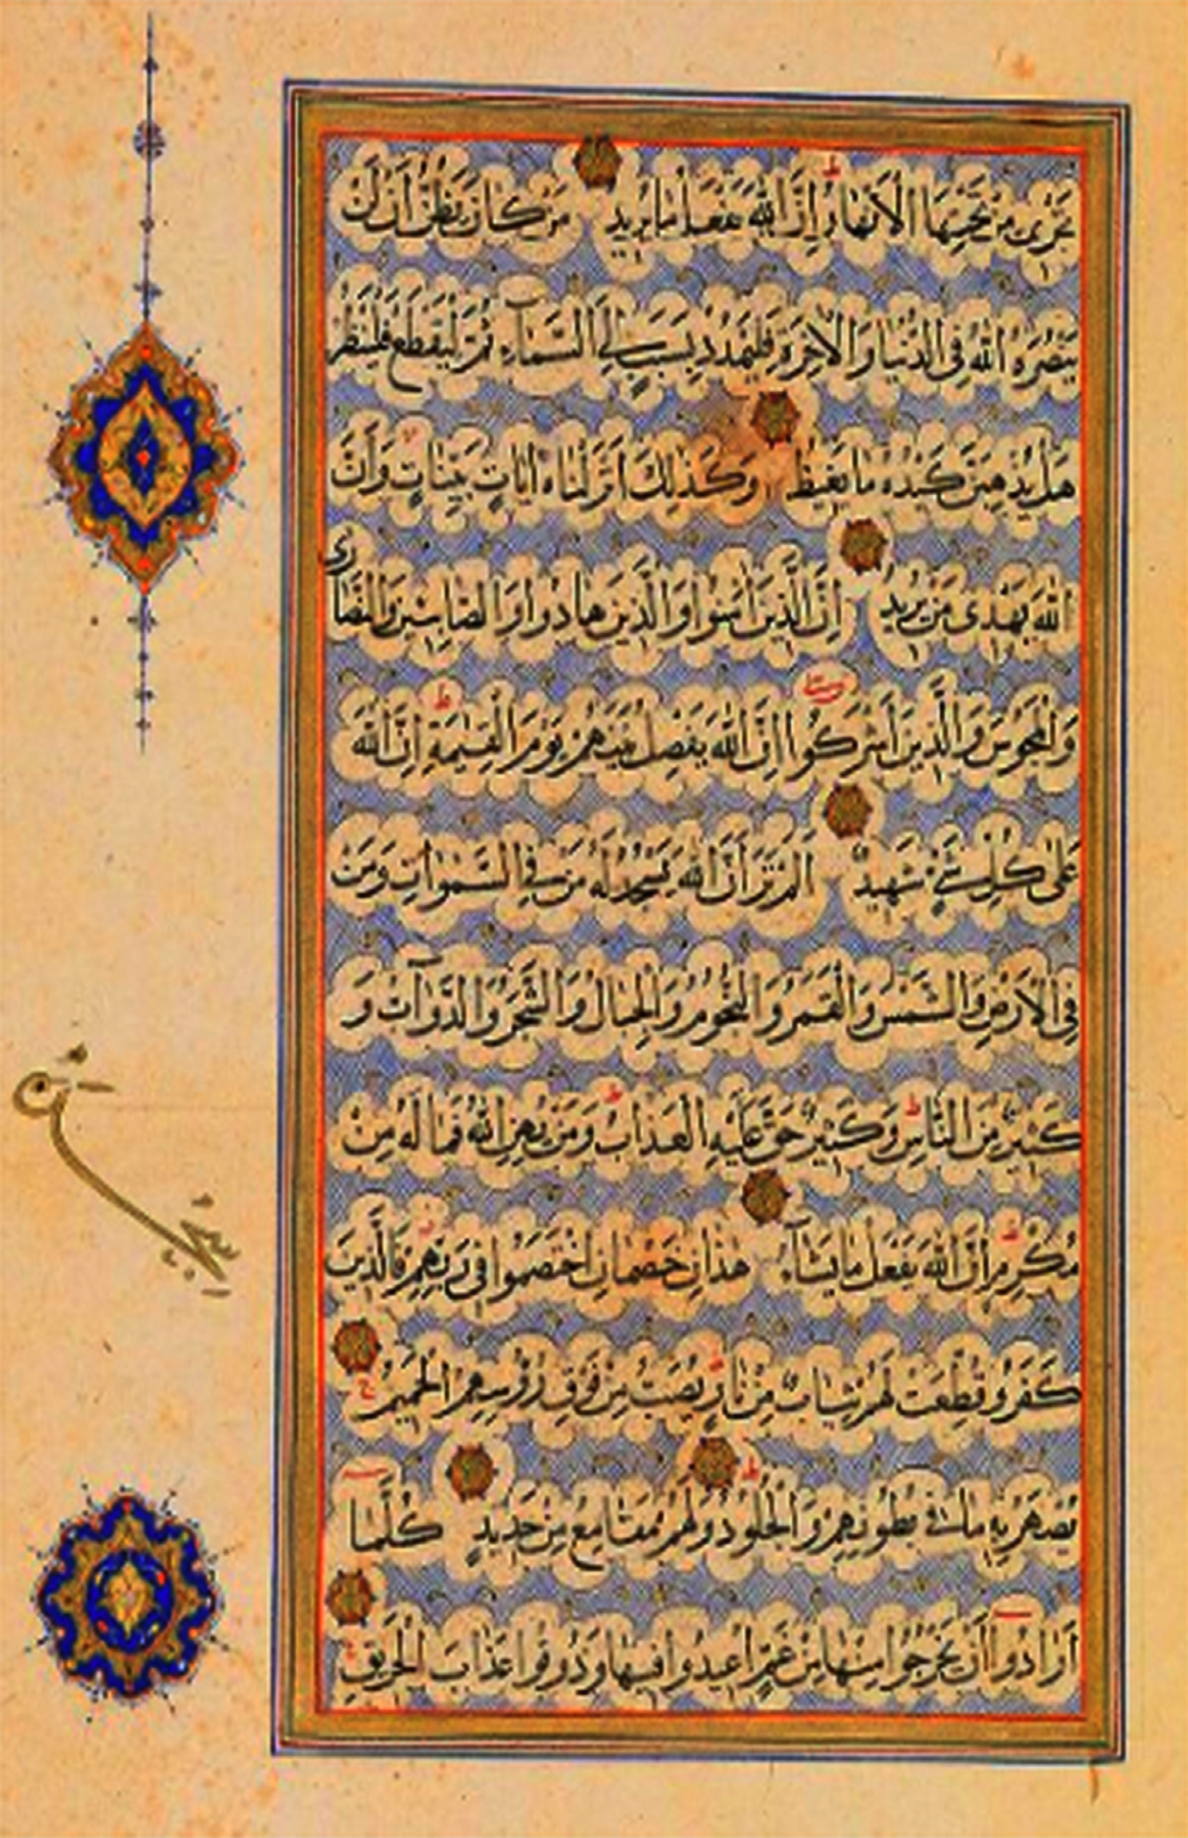 تَجْرِى مِنْ تَحْتِهَا الْاَنْهَارُ اِنَّ اللّٰهَ يَفْعَلُ مَا يُرِيدُ مَنْ كَانَ يَظُنُّ اَنْ لَنْ
يَنْصُرَهُ اللّٰهُ فِى الدُّنْيَا وَالْاٰخِرَةِ فَلْيَمْدُدْ بِسَبَبٍ اِلَى السَّمَآءِ ثُمَّ لْيَقْطَعْ فَلْيَنْظُرْ
هَلْ يُذْهِبَنَّ كَيْدُهُ مَا يَغِيظُ وَكَذٰلِكَ اَنْزَلْنَاهُ اٰيَاتٍ بَيِّنَاتٍ وَاَنَّ
اللّٰهَ يَهْدِى مَنْ يُرِيدُ اِنَّ الَّذِينَ اٰمَنُوا وَالَّذِينَ هَادُوا وَالصَّابِئِينَ وَالنَّصَارٰى
وَالْمَجُوسَ وَالَّذِينَ اَشْرَكُوا اِنَّ اللّٰهَ يَفْصِلُ بَيْنَهُمْ يَوْمَ الْقِيٰمَةِ اِنَّ اللّٰهَ
عَلٰى كُلِّ شَىْءٍ شَهِيدٌ اَلَمْ تَرَ اَنَّ اللّٰهَ يَسْجُدُ لَهُ مَنْ فِى السَّمٰوَاتِ وَمَنْ
فِى الْاَرْضِ وَالشَّمْسُ وَالْقَمَرُ وَالنُّجُومُ وَالْجِبَالُ وَالشَّجَرُ وَالدَّوَآبُّ وَ
كَثِيرٌ مِنَ النَّاسِ وَكَثِيرٌ حَقَّ عَلَيْهِ الْعَذَابُ وَمَنْ يُهِنِ اللّٰهُ فَمَا لَهُ مِنْ
مُكْرِمٍ اِنَّ اللّٰهَ يَفْعَلُ مَا يَشَآءُ هٰذَانِ خَصْمَانِ اخْتَصَمُوا فِى رَبِّهِمْ فَالَّذِينَ
كَفَرُوا قُطِّعَتْ لَهُمْ ثِيَابٌ مِنْ نَارٍ يُصَبُّ مِنْ فَوْقِ رُؤُسِهِمُ الْحَمِيمُ
يُصْهَرُ بِهِ مَا فِى بُطُونِهِمْ وَالْجُلُودُ وَلَهُمْ مَقَامِعُ مِنْ حَدِيدٍ كُلَّمَا
اَرَادُوا اَنْ يَخْرُجُوا مِنْهَا مِنْ غَمٍّ اُعِيدُوا فِيهَا وَذُوقُوا عَذَابَ الْحَرِيقِ